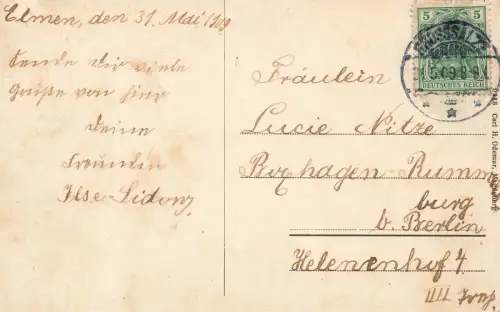 Elmen, den 31. Mai 1909
Sende dir viele
Grüße von hier
Deine
Freundin
Ilse-Lidony
5 5
DEUTSCHES REICH
Fräulein
Lucie Nitze
Boxhagen-Rumm
burg
b. Berlin
Helenenhof 4
IIII Trep.
Carl H. Odemar, Magdeburg